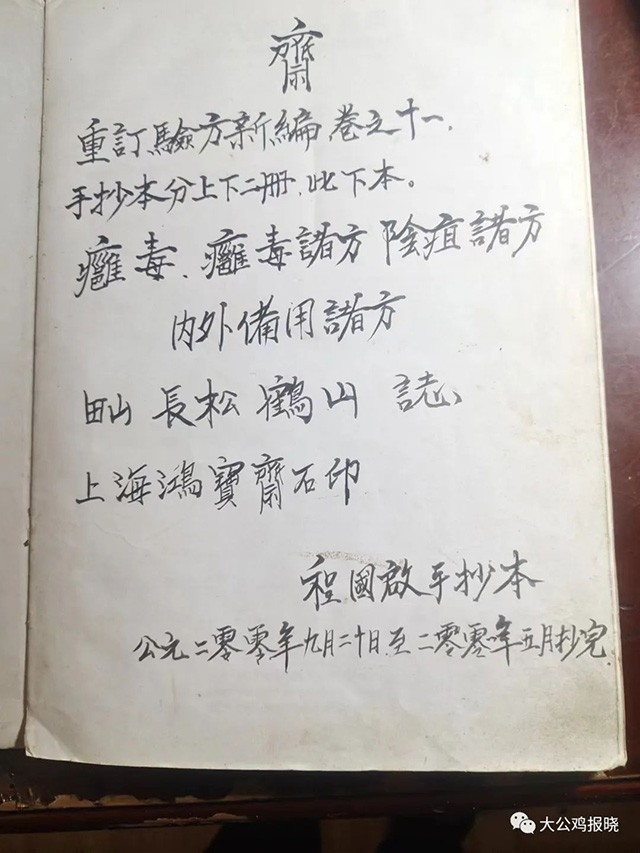 齋
重訂驗方新編卷之十一,
手抄本分上下二冊,此下本。
癰毒、癰毒諸方 陰疽諸方
内外備用諸方
長松鶴山 誌
上海鴻寶齋石印
程國啟手抄本
公元二零零年九月二十日至二零零年五月抄完
大公鸡报晓